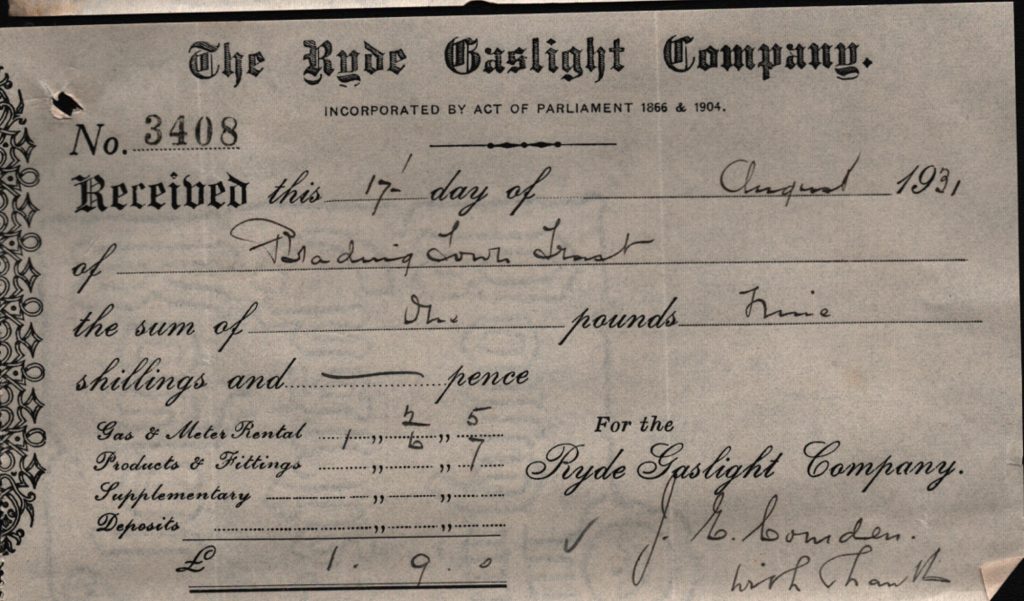 The Ryde Gaslight Company.
INCORPORATED BY ACT OF PARLIAMENT 1866 & 1904.
No. 3408
Received this 17 day of August 1931
of Brading Town Trust
the sum of One pounds Nine
shillings and — pence
2 5
Gas & Meter Rental 1 " 6 " 7
Products & Fittings " "
Supplementary " "
Deposits " "
£ 1. 9. 0
For the
Ryde Gaslight Company.
J. E. Comden.
with Thanks